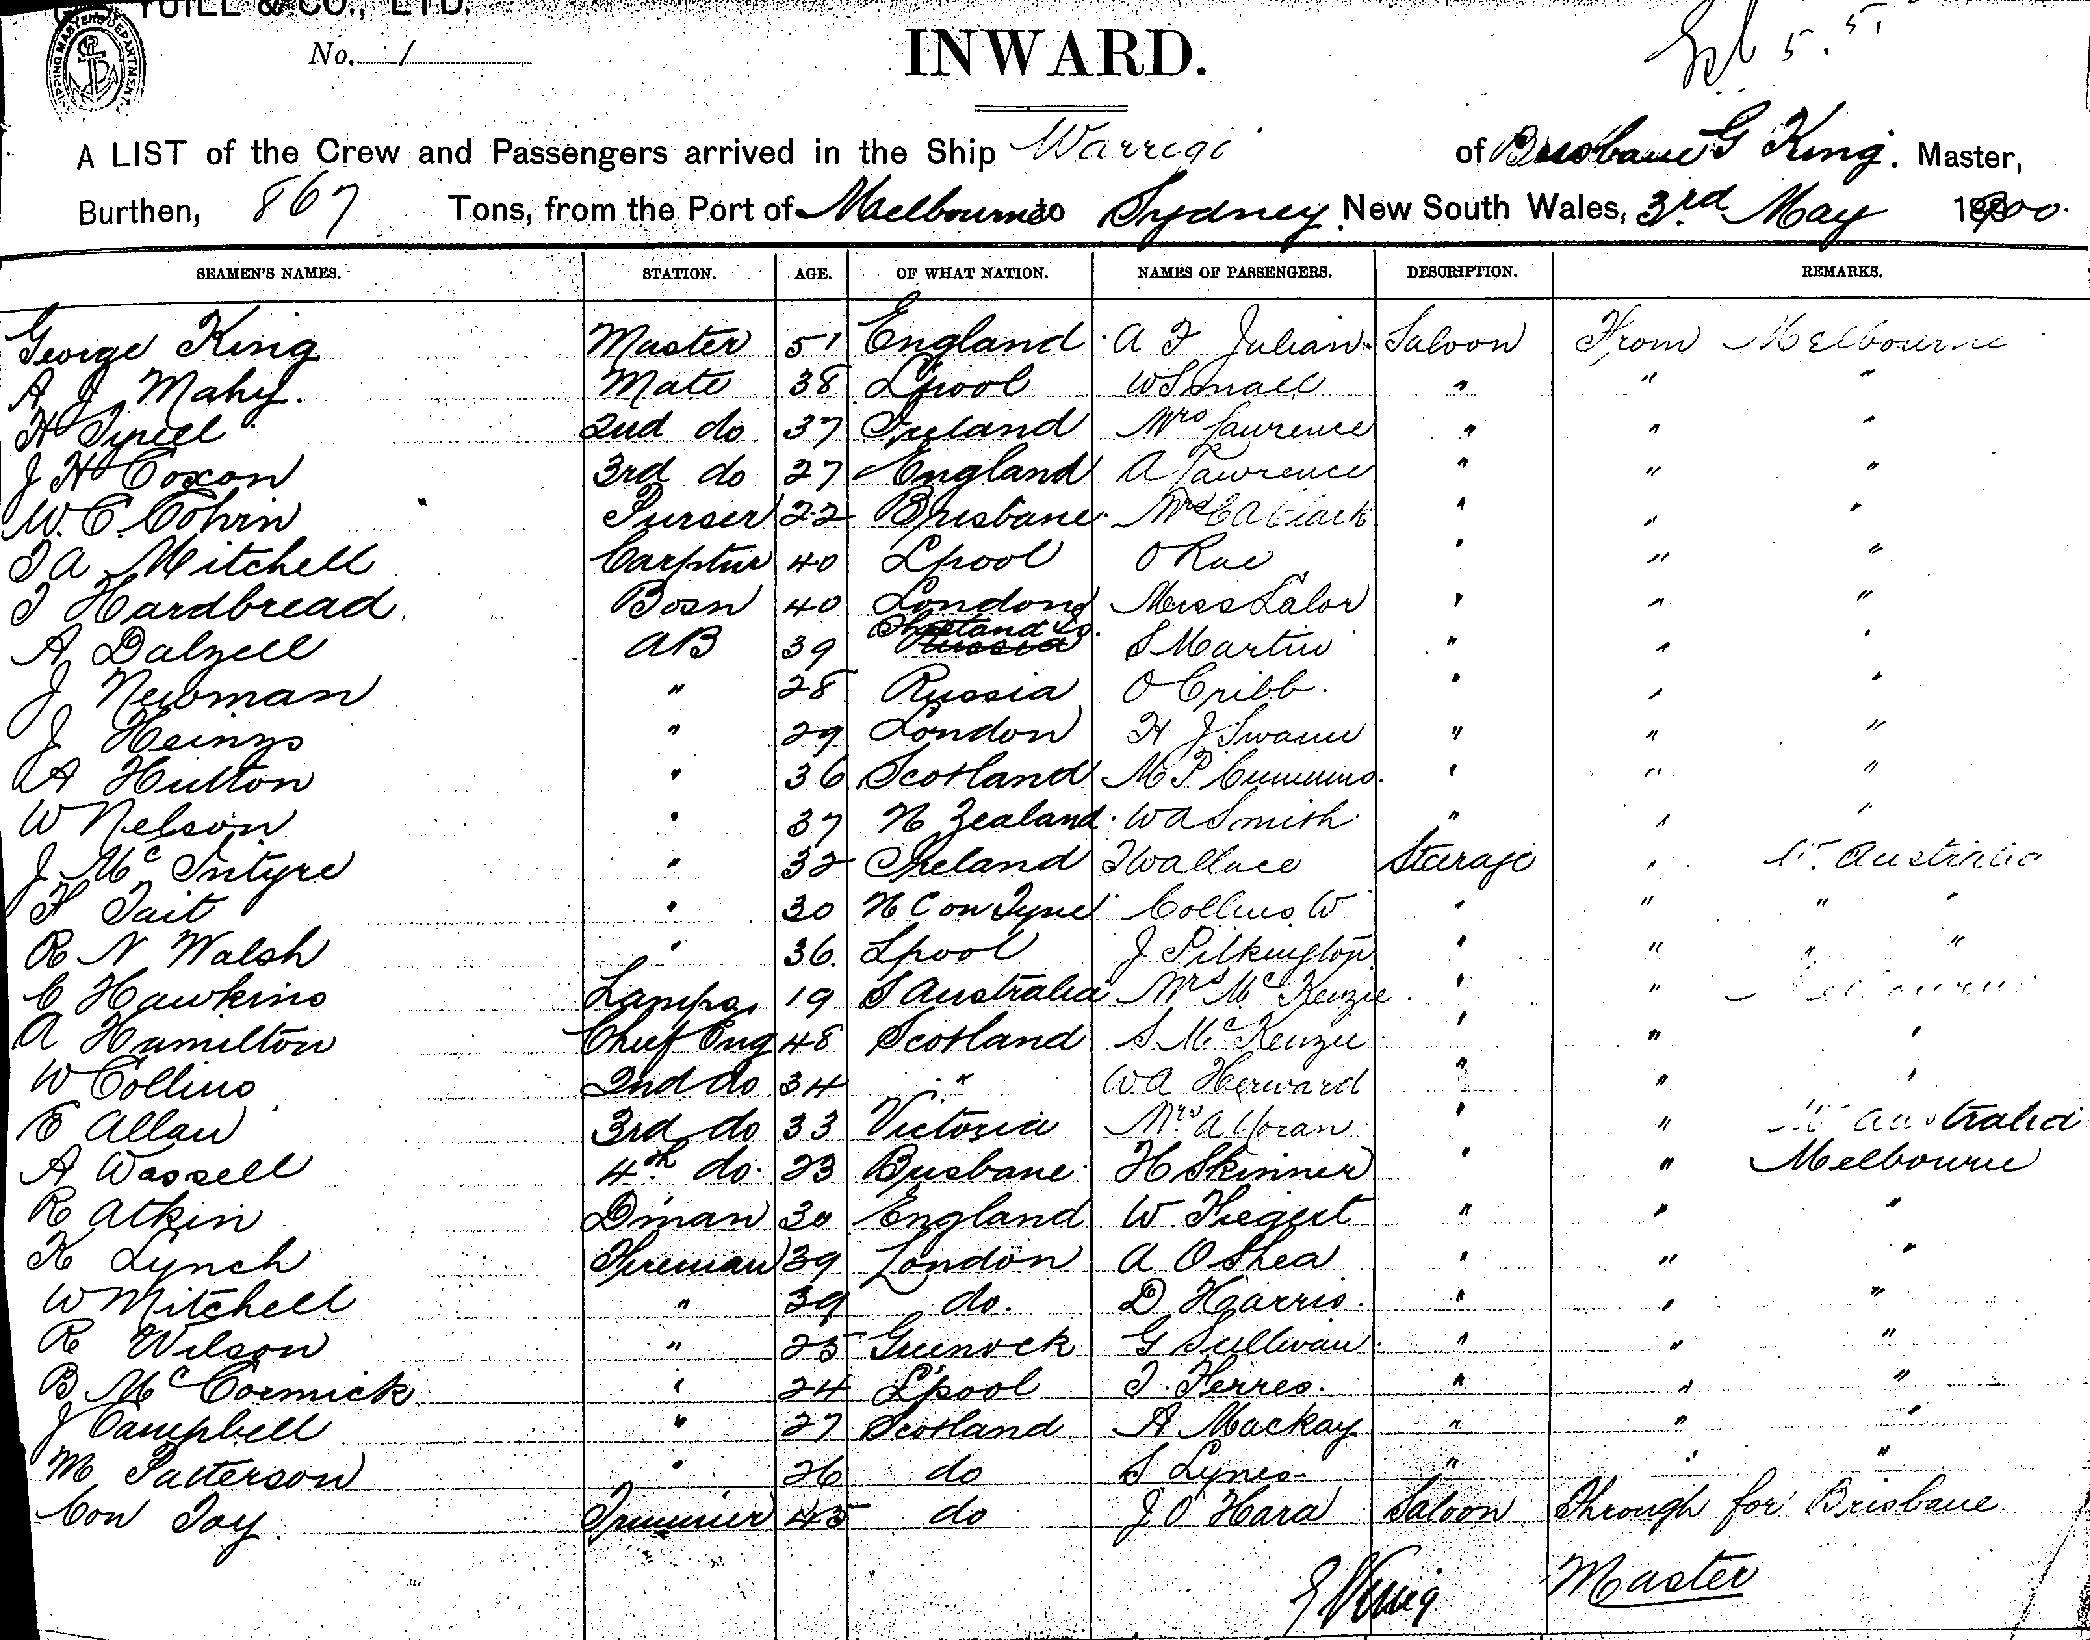 YUILL & CO., LTD.
No. 1
INWARD.
A LIST of the Crew and Passengers arrived in the Ship Warregi of Brisbane G King. Master,
Burthen, 867 Tons, from the Port of Melbourne to Sydney New South Wales, 3rd May 1900.
SEAMEN'S NAMES. STATION. AGE. OF WHAT NATION. NAMES OF PASSENGERS. DESCRIPTION. REMARKS.
George King Master 51 England A F Julian Saloon From Melbourne
A J Mahy. Mate 38 L'pool W Small " " "
H Tyrell 2nd do 37 Ireland Mrs Lawrence " " "
J H Coxon 3rd do 27 England A Lawrence " " "
W. C. Purser 22 Brisbane Mrs E A Clark " " "
T A Mitchell Carptur 40 Lpool O Rae " " "
T Hardbread Bosn 40 London Miss Lalor " " "
A Dalzell AB 39 Shetland Is. Russia S Martin " " "
J Newman " 28 Russia O Cribb. " " "
J Heinzs " 29 London H J Swann " " "
A Hutton " 36 Scotland M P Cummins " " "
W Nelson " 37 N Zealand W A Smith " " "
J McIntyre " 32 Ireland T Wallace Steerage " W. Australia
F Tait " 30 N C on Tyne Collins W " " " "
R N Walsh " 36. Lpool J Pilkington " " " "
C Hawkins Lamps. 19 S Australia Mrs McKenzie " " Melbourne
A Hamilton Chief Eng 48 Scotland S McKenzie " " "
W Collins 2nd do 34 " W A Herward " " "
E Allan 3rd do 33 Victoria Mrs A Horan " " W Australia
A Wassell 4th do. 23 Brisbane H Skinner " " Melbourne
R Atkin Dman 30 England W. " " "
K Lynch Fireman 39 London A O Shea " " "
W Mitchell " 39 do. D Harris. " " "
R Wilson " 25 Greenock G Sullivan " " "
B McCormick " 24 L'pool T. Ferres. " " "
J Campbell " 27 Scotland A Mackay " " "
M Patterson " 26 do S Lynes " " "
Con Joy Trimmer 45 do J O'Hara Saloon Through for Brisbane
G King Master